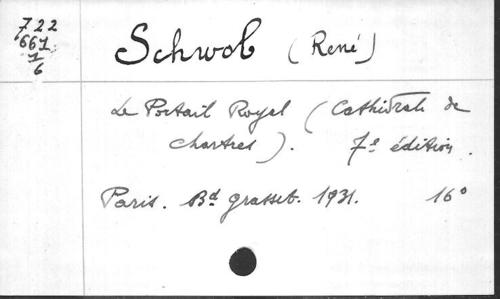 722
661
1
6
Schwob (René)
Le Portail Royal (Cathédrale de
Chartres). 7e édition.
Paris. Bd Grasset. 1931. 16°